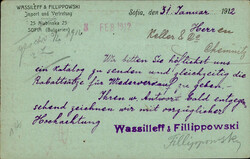 WASSILEFF & FILIPPOWSKI
Import und Vertretung
25 Nischinska 25
SOFIA (Bulgarien)
Sofia, den 31. Januar 1912
3 FEB 1912
Herren
Keller & Co
Chemnitz
Wir bitten Sie höflichst uns
ein Katalog zu senden und gleichzeitig die
Rabattsätze für Wiederverkauf zu geben.
Ihren w. Antwort bald entgegen
sehend zeichnen wir mit vorzüglicher
Hochachtung
Wassileff & Filippowski
Filippowski